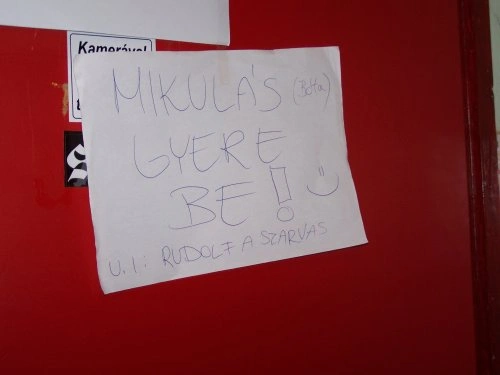 Kamerával
MIKULÁS (Béta)
GYERE
BE! :)
U.I: RUDOLF A SZARVAS